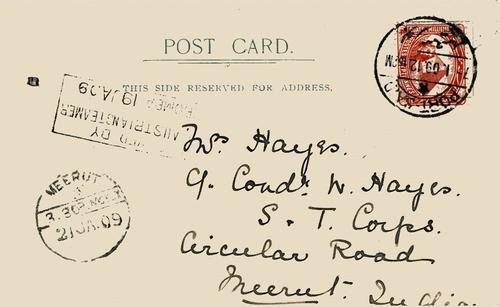 POST CARD.
THIS SIDE RESERVED FOR ADDRESS.
BY
AUSTRIAN STEAMER
19 JA.09
MEERUT
21 JA.09
Mrs Hayes.
C. Condr W. Hayes.
S. & T. Corps.
Circular Road
Meerut India